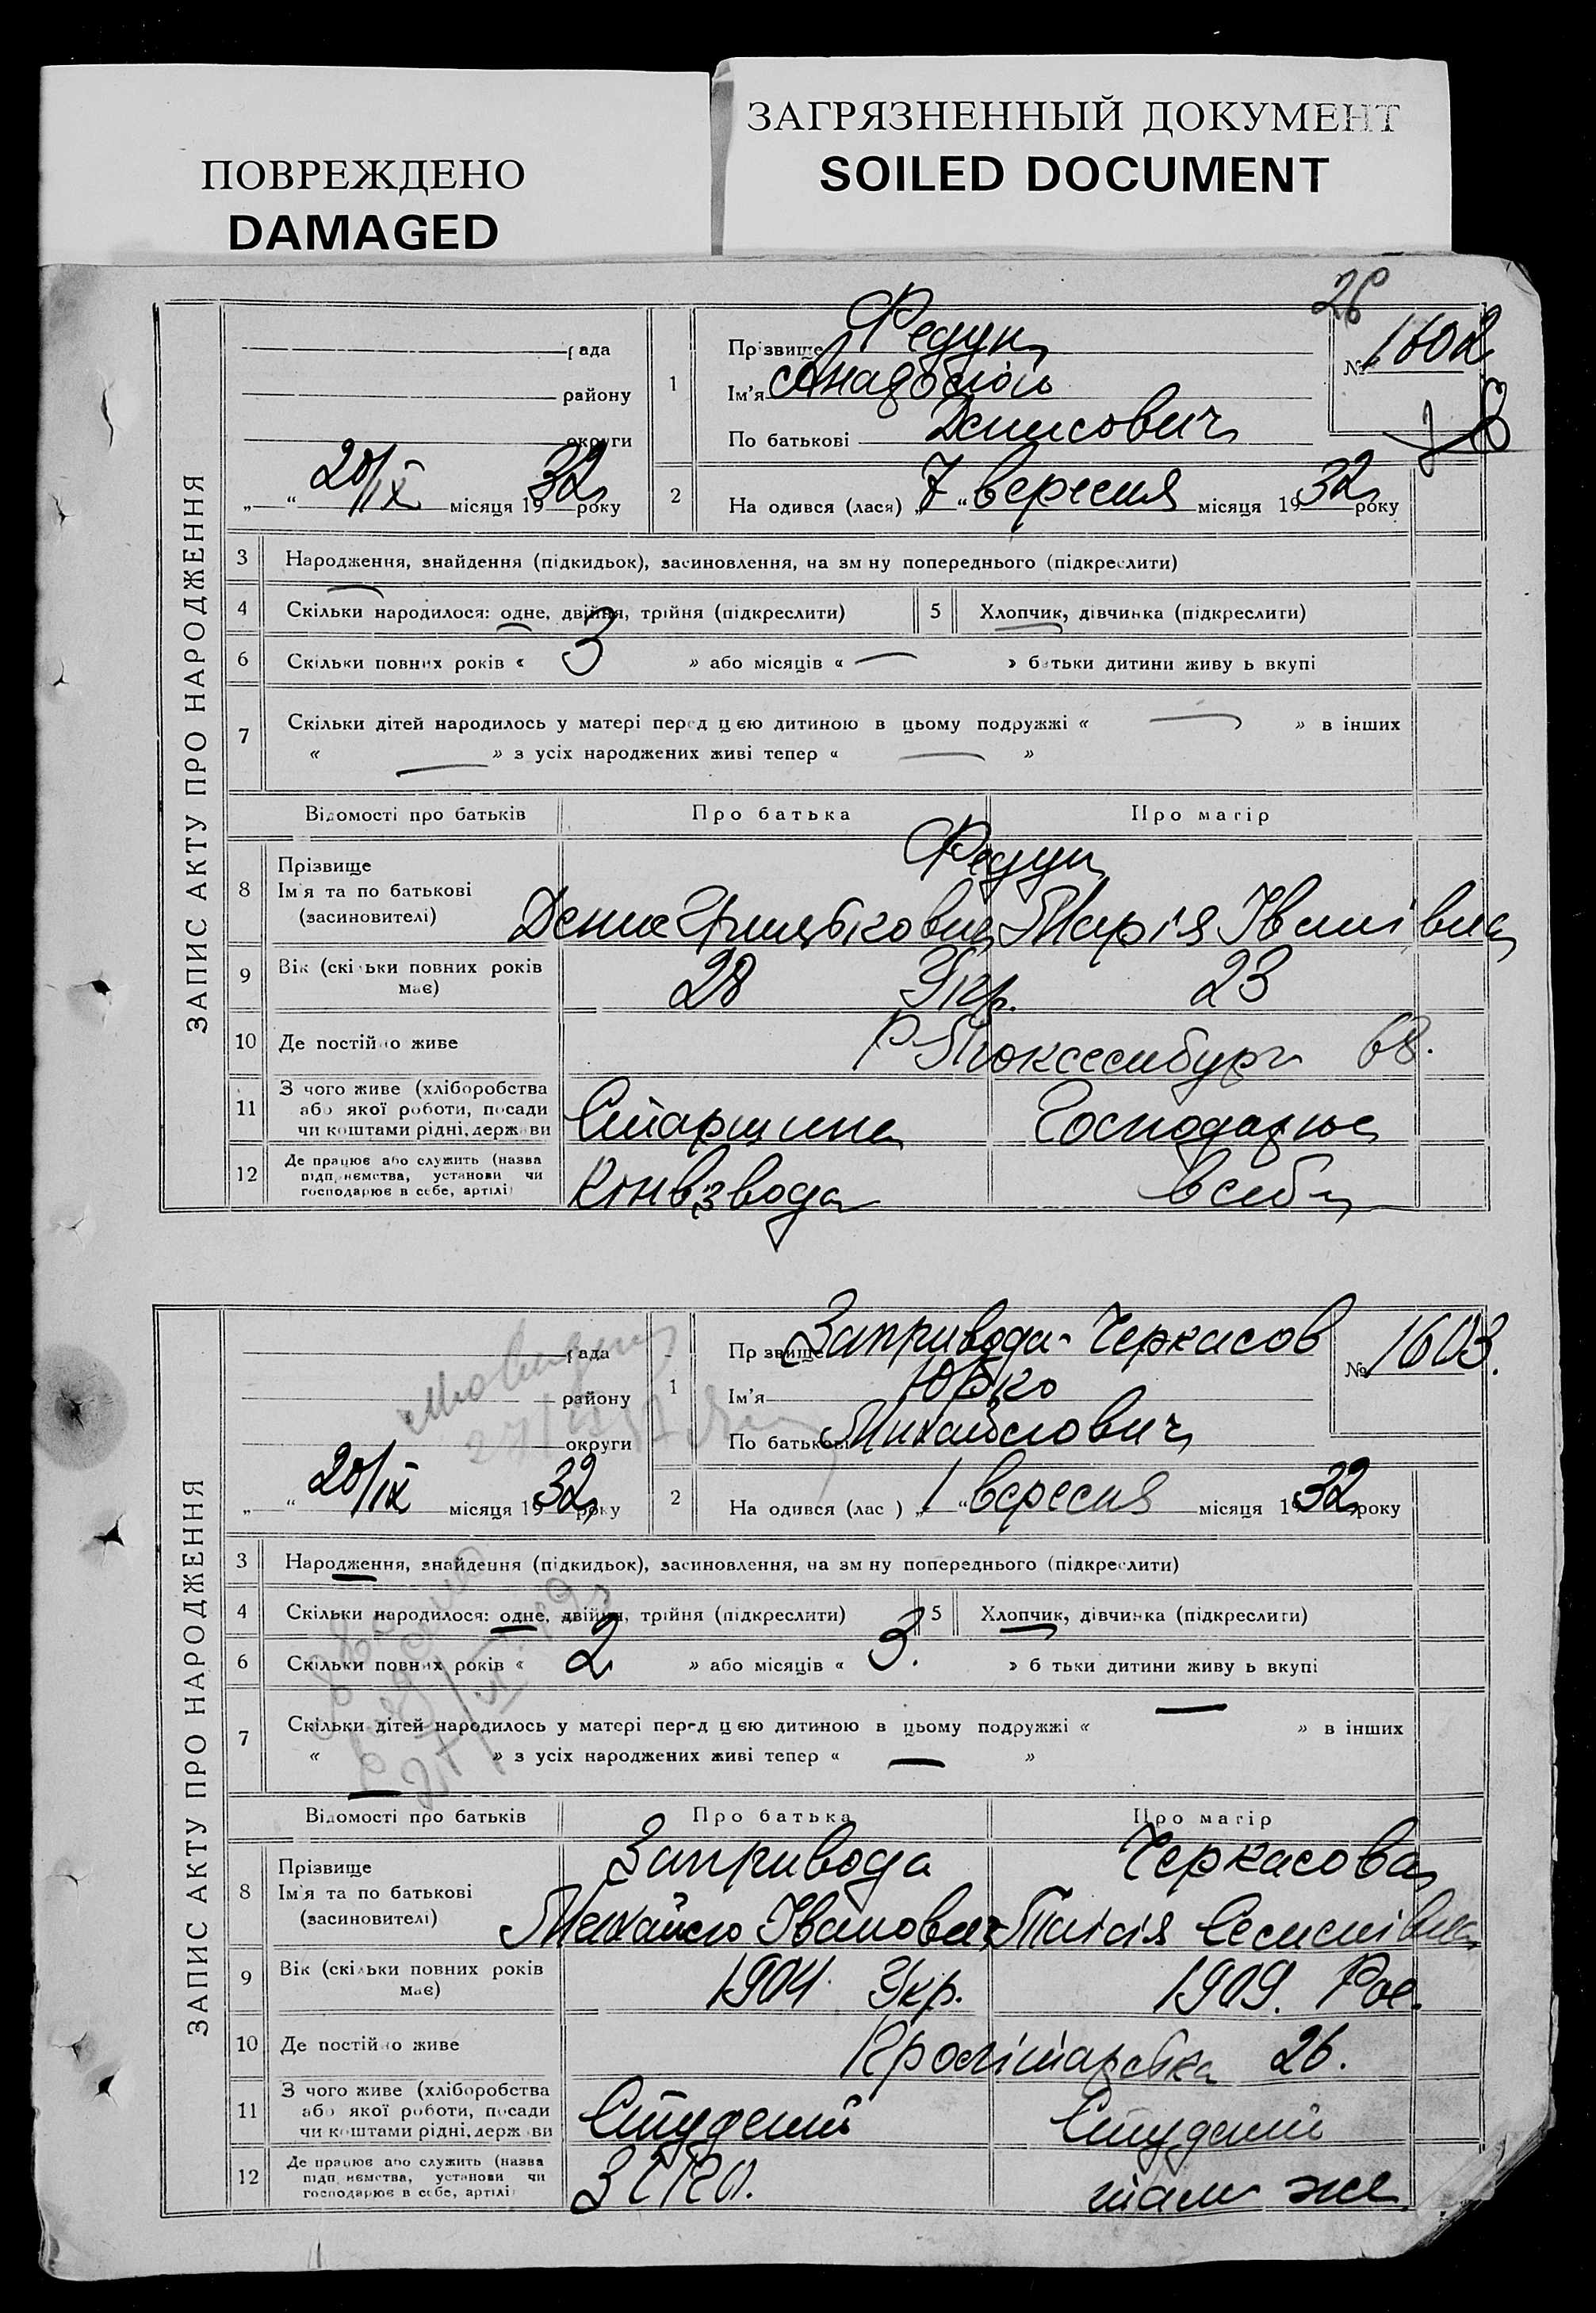 ПОВРЕЖДЕНО
DAMAGED
ЗАГРЯЗНЕННЫЙ ДОКУМЕНТ
SOILED DOCUMENT
26
ЗАПИС АКТУ ПРО НАРОДЖЕННЯ
рада
району
округи
„ “ 20/IX місяця 1932 року
1
Прізвище Федун
Ім'я
По батькові Денисович
№ 1602
2
На одився (лася) „7“ вересня місяця 1932 року
3 Народження, знайдення (підкидьок), засиновлення, на зм ну попереднього (підкреслити)
4 Скільки народилося: одне, двійня, трійня (підкреслити)
5 Хлопчик, дівчинка (підкреслити)
6 Скільки повних років « 3 » або місяців « — » батьки дитини живу ь вкупі
7 Скільки дітей народилось у матері перед цею дитиною в цьому подружжі « — » в інших
« — » з усіх народжених живі тепер « — »
Відомості про батьків
Про батька
Про матір
8 Прізвище
Ім'я та по батькові
(засиновителі)
Федун
Денис Марія Іванівна
9 Вік (скільки повних років має)
28 Укр. 23
10 Де постійно живе
Р. Люксембург 68.
11 З чого живе (хліборобства
або якої роботи, посади
чи коштами рідні, держави
Старшина
Господарює
12 Де працює або служить (назва
підп иємства, установи чи
господарює в себе, артілі)
Кінвзвода
в себе
ЗАПИС АКТУ ПРО НАРОДЖЕННЯ
рада
району
округи
„ “ 20/IX місяця 1932 року
1
Пр звище Запривода-Черкасов
Ім'я Юрко
По батькові Михайлович
№ 1603.
2
На одився (лас ) „1“ вересня місяця 1932 року
3 Народження, знайдення (підкидьок), засиновлення, на зм ну попереднього (підкреслити)
4 Скільки народилося: одне, двійня, трійня (підкреслити)
5 Хлопчик, дівчинка (підкреслити)
6 Скільки повних років « 2 » або місяців « 3. » б тьки дитини живу ь вкупі
7 Скільки дітей народилось у матері перед цею дитиною в цьому подружжі « — » в інших
« — » з усіх народжених живі тепер « — »
Відомості про батьків
Про батька
Про матір
8 Прізвище
Ім'я та по батькові
(засиновителі)
Запривода Черкасова
Михайло Іванович Таісія Семенівна
9 Вік (скільки повних років має)
1904 Укр. 1909. Рос.
10 Де постійно живе
Пролітарська 26.
11 З чого живе (хліборобства
або якої роботи, посади
чи коштами рідні, держ ви
Студент
Студент
12 Де працює або служить (назва
підп иємства, установи чи
господарює в себе, артілі)
там же